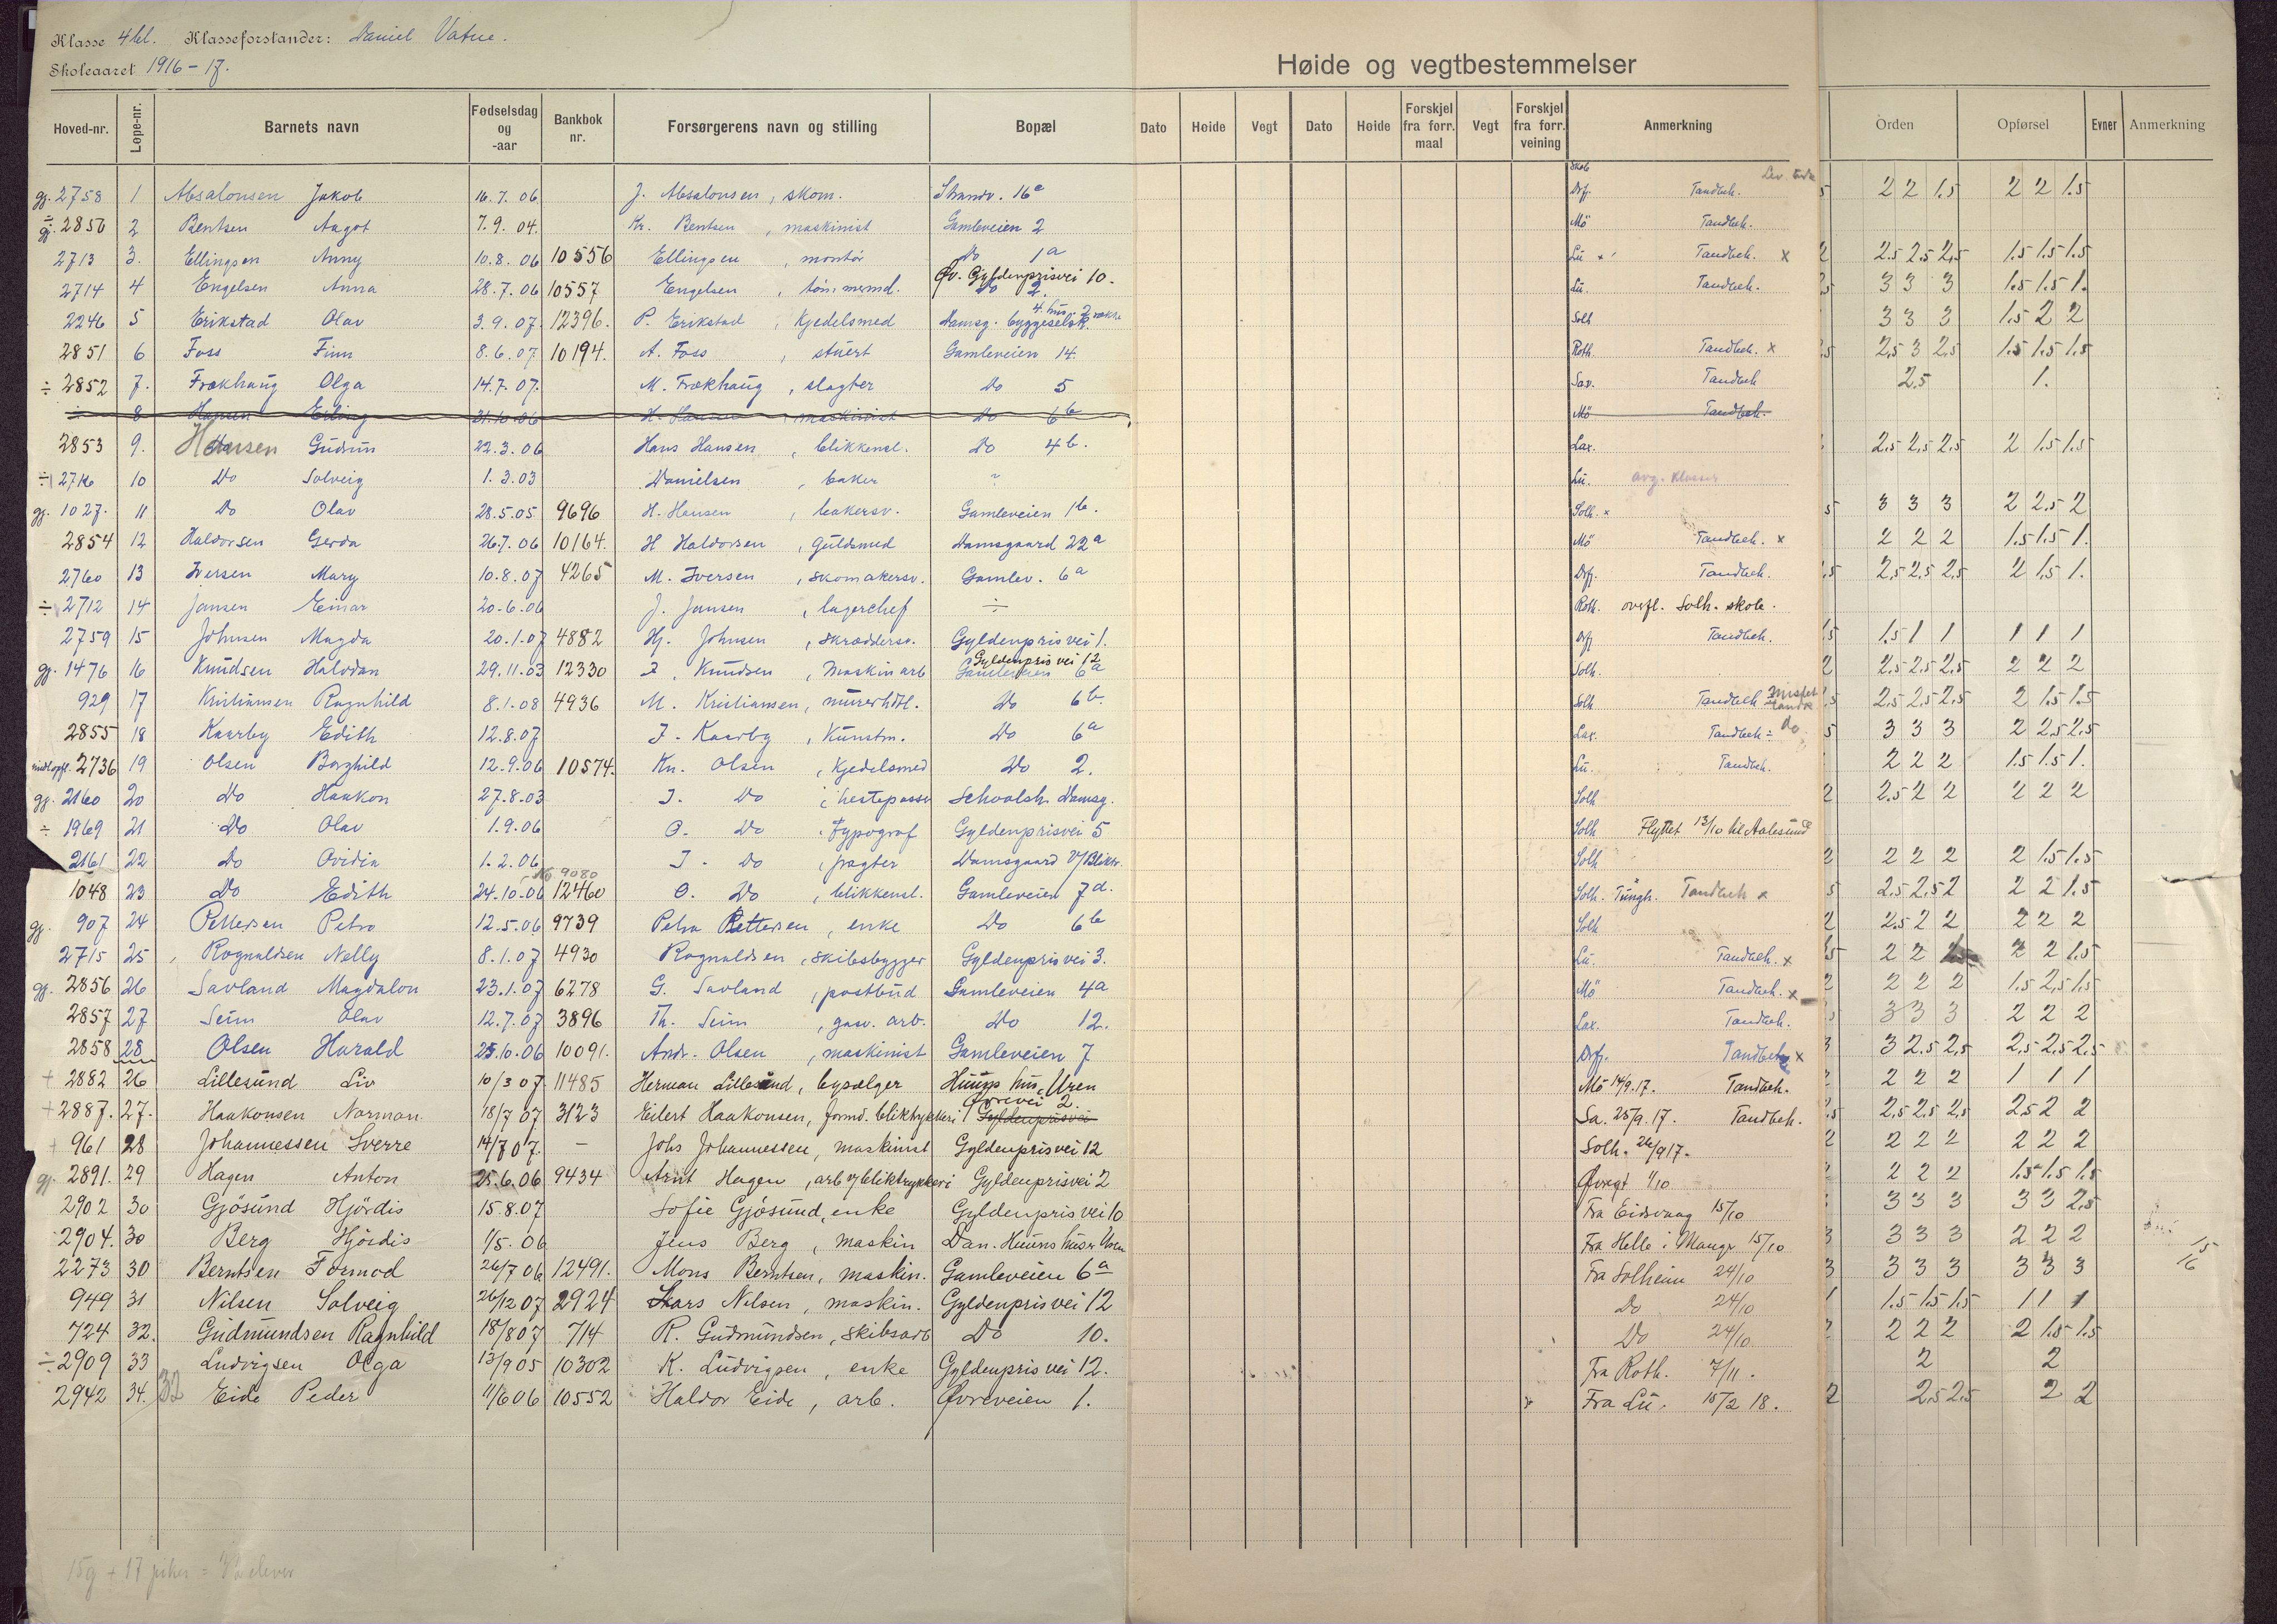 Klasse 4 bl. Klasseforstander: Daniel Vatne.
Skoleaaret 1916-17.
Høide og vegtbestemmelser
Hoved-nr. Løpe-nr. Barnets navn Fødselsdag og -aar Bankbok nr. Forsørgerens navn og stilling Bopæl Dato Høide Vegt Dato Høide Forskjel fra forr. maal Vegt Forskjel fra forr. veining Anmerkning Orden Opførsel Evner Anmerkning
gj. 2758 1 Absalonsen Jakob 16.7.06 J. Absalonsen, skom. Strandv. 16a Drf. Tandbeh. 5 2 2 1.5 2 2 1.5
÷ gj. 2856 2 Bentsen Aagot 7.9.04. Kr. Bentsen, maskinist Gamleveien 2 Mö Tandbeh.
2713 3. Ellingsen Anny 10.8.06 10556 Ellingsen, montör Do 1a Lu x Tandbeh. x 2 2.5 2.5 2.5 1.5 1.5 1.5
2714 4 Engelsen Anna 28.7.06 10557 Engelsen, töm.mermd. Do 2. Öv. Gyldenprisvei 10. Lu. Tandbeh. 5 3 3 3 1.5 1.5 1.
2246 5 Erikstad Olav 3.9.07. 12396. P. Erikstad, Kjedelsmed Damsg. byggeselsk. 4. hus. 2 række Solh 3 3 3 1.5 2 2
2851 6 Foss Finn 8.6.07. 10194. A. Foss, stuert Gamleveien 14. Roth. Tandbeh. x 5 2.5 3 2.5 1.5 1.5 1.5
÷ 2852 7. Frækhaug Olga 14.7.07. M. Frækhaug, slagter Do 5 Sav. Tandbeh 2.5 1.
8 Hansen Erling 31.10.06 H. Hansen, maskinist Do 6b Mö Tandbeh.
2853 9. Hansen Gudrun 22.3.06 Hans Hansen, blikkensl. Do 4b. Lax. 2.5 2.5 2.5 2 1.5 1.5
÷ 2716 10 Do Solveig 1.3.03 Danielsen, baker " Lu. avg. Klasser
gj. 1027. 11 Do Olav 28.5.05 9696 H. Hansen, bakersv. Gamleveien 1b. Solh. x 5 3 3 3 2 2.5 2
2854 12 Haldorsen Gerda 26.7.06 10164. H Haldorsen, Guldsmed Damsgaard 22a Mö Tandbeh. x 2 2 2 1.5 1.5 1.
2760 13 Iversen Mary 10.8.07 4265 M. Iversen, skomakersv. Gamlev. 6a Drf. Tandbeh. 5 2.5 2.5 2.5 2 1.5 1.
÷ 2712 14 Jansen Einar 20.6.06 J. Jansen, lagerchef ÷ Roth. overfl. Solh. skole.
2759 15 Johnsen Magda 20.1.07 4882 Hj. Johnsen, skræddersv. Gyldenprisvei 1. Drf Tandbeh. 5 1.5 1 1 1 1 1
gj. 1476 16 Knudsen Halvdan 29.11.03 12330 I. Knudsen, maskinarb Gyldenprisvei 12 Gamleveien 6a Solh. 2 2.5 2.5 2.5 2 2 2
929 17 Kristiansen Ragnhild 8.1.08 4936 M. Kristiansen, murerhdtl. Do 6b. Solh Tandbeh mistet 5 2.5 2.5 2.5 2 1.5 1.5
2855 18 Kaarby Edith 12.8.07 J. Kaarby, Kunstm. Do 6a Lax. Tandbeh ÷ Do 5 3 3 3 2 2.5 2.5
2736 19 Olsen Borghild 12.9.06 10574. Kn. Olsen, Kjedelsmed Do 2. Lu. Tandbeh. 2 2 2 1.5 1.5 1.
gj. 2160 20 Do Haakon 27.8.03 J. Do, hestepasser Schoolsh. Damsg. Solh 2 2.5 2 2 2 2 2
÷ 1969 21 Do Olav 1.9.06 O. Do, typograf Gyldenprisvei 5 Solh Flyttet 13/10 til Aalesund
2161 22 Do Ovidia 1.2.06 J. Do, pagter Damsgaard v/Bliktr. Solh 2 2 2 2 2 1.5 1.5
1048 23 Do Edith 24.10.06 No 9080 12460 O. Do, blikkensl. Gamleveien 7d. Solh. Tungh. Tandbeh x 5 2.5 2.5 2 2 2 1.5
gj. 907 24 Pettersen Petra 12.5.06 9739 Petra Pettersen, enke Do 6b Solh 2 2.5 2 2 2 2 2
2715 25 Ragnaldsen Nelly 8.1.07 4930 Ragnaldsen, skibsbygger Gyldenprisvei 3. Lu. Tandbeh. x 5 2 2 2 2 1.5
gj. 2856 26 Savland Magdalon 23.1.07 6278 G. Savland, postbud Gamleveien 4a Mö Tandbeh. x 2 2 2 2 1.5 2.5 1.5
2857 27 Seim Olav 12.7.07 3896 Th. Seim, gasv. arb. Do 12. Lax. Tandbeh. 3 3 3 2 2 2
2858 28 Olsen Harald 25.10.06 10091. Andr. Olsen, maskinist Gamleveien 7 Drf. Tandbeh x 3 3 2.5 2.5 2.5 2.5 2.5
+ 2882 26 Lillesund Liv 10/3 07 11485 Herman Lillesund, bysælger Huuns hus, Uren Mö 14/9.17. Tandbeh. 2 2 2 2 1 1 1
+ 2887. 27. Haakonsen Norman 18/7 07 3123 Eilert Haakonsen, formd. bliktrykkeri Gyldenprisvei Övrevei 2. Sa. 25/9.17. Tandbeh. 2.5 2.5 2.5 2.5 2.5 2 2
+ 961 28 Johannessen Sverre 14/7 07. - Johs Johannessen, maskinist Gyldenprisvei 12 Solh. 26/9 17. 2 2 2 2 2 2 2
gj. 2891. 29 Hagen Anton 25.6.06 9434 Arnt Hagen, arb v/bliktrykkeri Gyldenprisvei 2 Øvregt 1/10 2 2 2 2 1.5 1.5 1.5
2902 30 Gjösund Hjördis 15.8.07 Sofie Gjösund, enke Gyldenprisvei 10 Fra Eidsvaag 15/10 3 3 3 3 3 2.5
2904. 30 Berg Hjördis 1/5.06 Jens Berg, maskin Dan. Huuns huser Uren Fra Helle i Manger 15/10 3 3 3 3 2 2 2
2273 30 Berntsen Tormod 26/7 06 12491. Mons Berntsen, maskin. Gamleveien 6a Fra Solheim 24/10 3 3 3 3 3 3 3
949 31 Nilsen Solveig 26/12 07 2924 Lars Nilsen, maskin. Gyldenprisvei 12 Do 24/10 1 1.5 1.5 1.5 1 1 1
724 32. Gudmundsen Ragnhild 18/8 07 714 R. Gudmundsen, skibsarb Do 10. Do 24/10 2 2 2 2 2 1.5 1.5
÷ 2909 33 Ludvigsen Olga 13/9 05 10302 K. Ludvigsen, enke Gyldenprisvei 12. Fra Roth. 7/11. 2 2
2942 34. 32 Eide Peder 11/6 06 10552 Haldor Eide, arb. Øvreveien 1. Fra Lu. 15/2 18. 2 2.5 2.5 2 2
15g + 17 piker = 32 elever